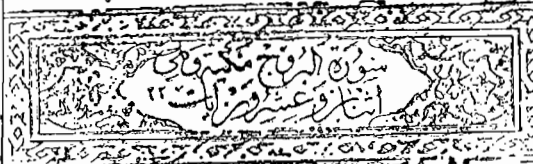 سورة البروج مكية وهي
اثنان وعشرون آيات ٢٢